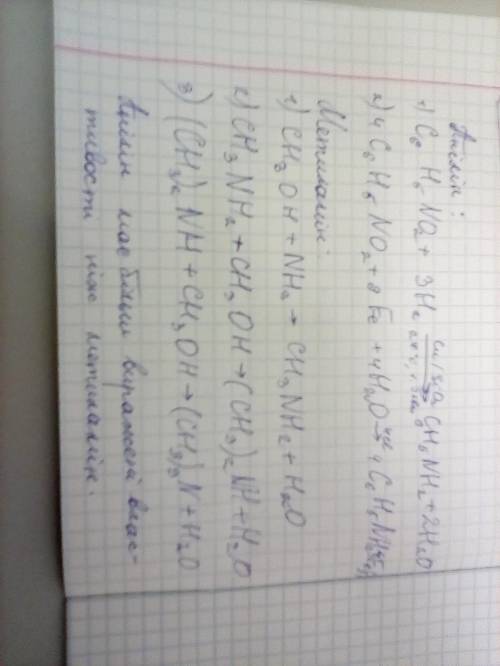 Анілін:
1) C₆H₅NO₂ + 3H₂ → C₆H₅NH₂ + 2H₂O
2) 4C₆H₅NO₂ + 9Fe + 4H₂O → 4C₆H₅NH₂
Метиламін:
1) CH₃OH + NH₃ → CH₃NH₂ + H₂O
2) CH₃NH₂ + CH₃OH → (CH₃)₂NH + H₂O
3) (CH₃)₂NH + CH₃OH → (CH₃)₃N + H₂O
Анілін має більш виражені влас-
тивості ніж метиламін.